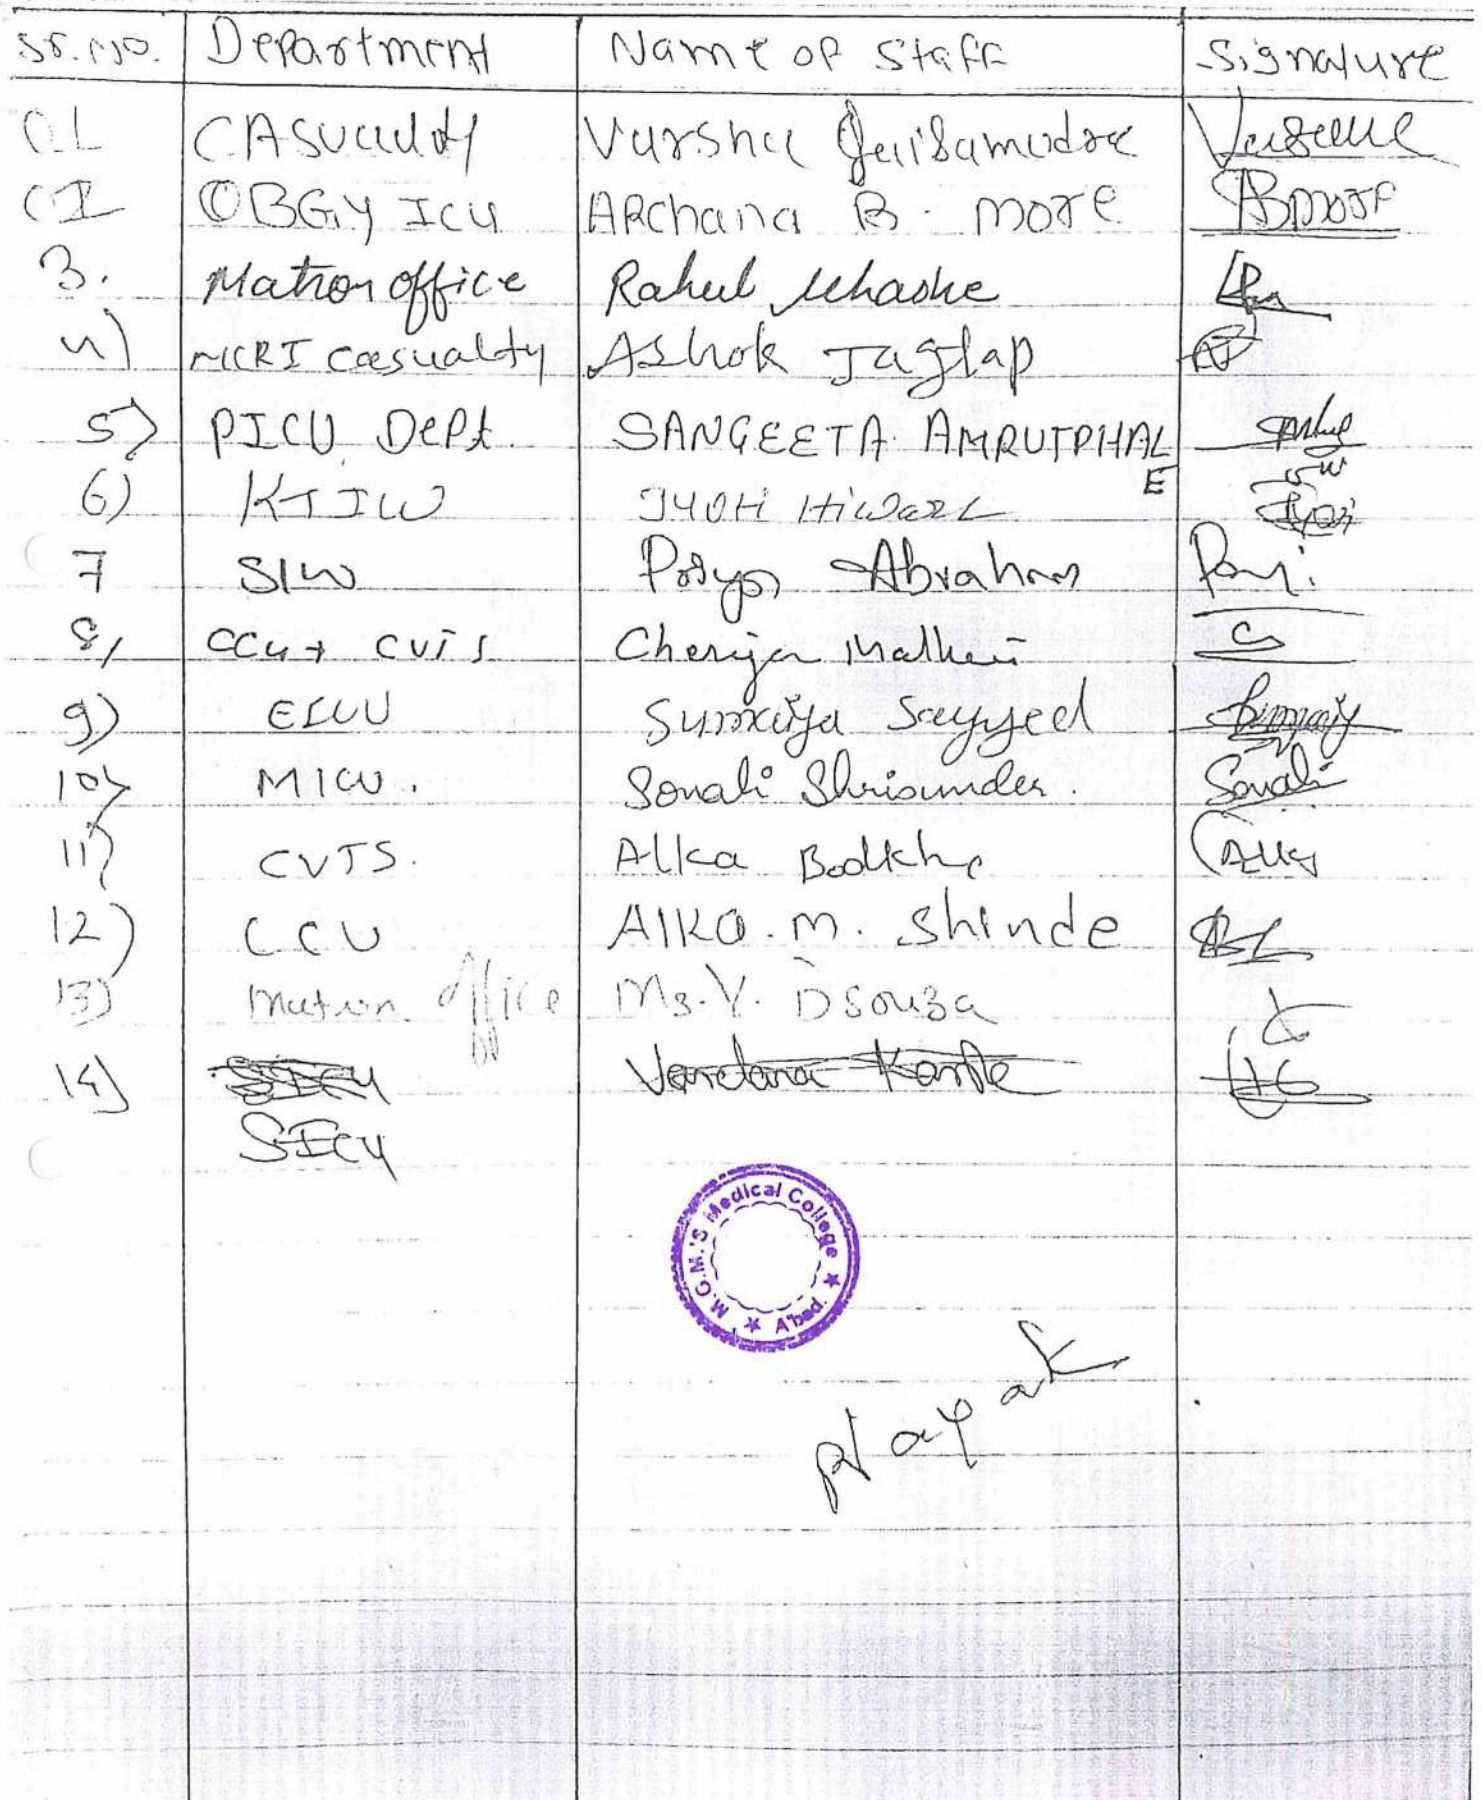 Sr.No. Department Name of Staff Signature
01 CAsuality Varsha Jaisamudre Varsha
02 OBGY ICU ARchana B. more ABmore
3. Matron office Rahul Mhaske
4) MCRI casualty Ashok Jagtap AJ
5) PICU Dept. SANGEETA AMRUTPHALE
6) KTICU Jyoti Hiware
7 SICU Abraham
8) CCU + CVTS Cherija Mathew
9) EICU Sumaiya Sayyed Sumaiy
10) MICU. Sonali Shrisunder. Sonali
11) CVTS. Alka Bodkhe Alka
12) CCU Alka. m. Shinde
13) Matron office Ms. V. Dsouza
14) SICU Vandana
SICU
M.G.M.'S Medical College ★ A'bad. ★
Nayak